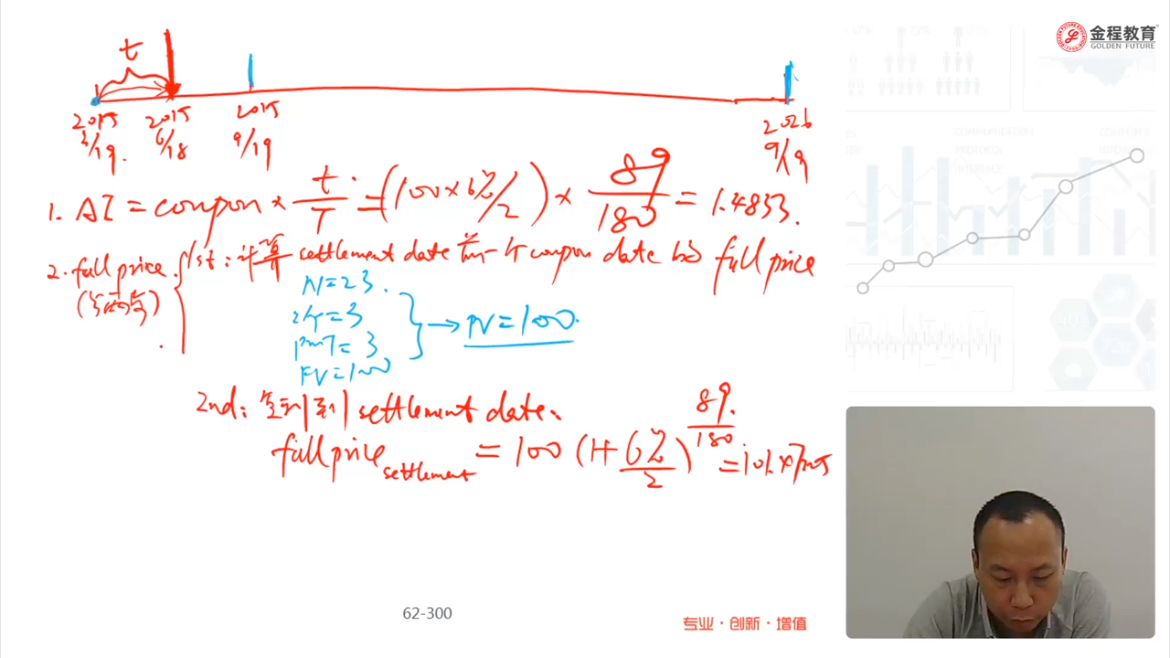 金程教育
GOLDEN FUTURE
t
2015 2015 2015 2026
3/19. 6/18 9/19 9/19
1. AI = coupon × t/T = (100×6%/2) × 89/180 = 1.4833.
2. full price. 1st: 计算 settlement date 前一个 coupon date 的 full price
N=23.
I/Y=3
PMT=3
FV=100
→ PV=100.
2nd: 复利到 settlement date.
full price settlement = 100 (1+6%/2)^89/180 =101.
62-300
专业·创新·增值